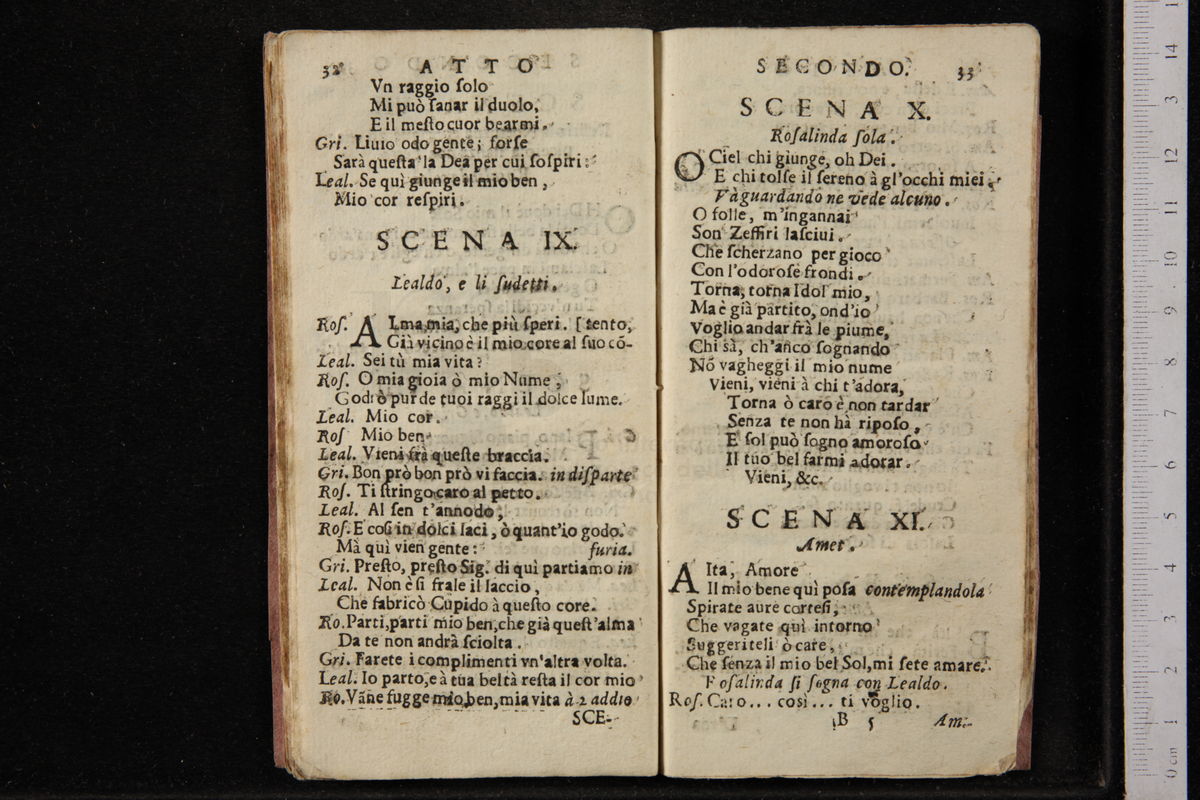 32 ATTO
Vn raggio ſolo
Mi può ſanar il duolo,
E il meſto cuor bearmi.
Gri. Liuio odo gente; forſe
Sarà queſta la Dea per cui ſoſpiri:
Leal. Se quì giunge il mio ben,
Mio cor reſpiri.
SCENA IX.
Lealdo, e li ſudetti.
Roſ. ALma mia, che più ſperi. [tento,
Già vicino è il mio core al ſuo cō-
Leal. Sei tù mia vita?
Roſ. O mia gioia ò mio Nume,
Godrò pur de tuoi raggi il dolce lume.
Leal. Mio cor.
Roſ Mio ben
Leal. Vieni frà queſte braccia.
Gri. Bon prò bon prò vi faccia. in diſparte
Roſ. Ti ſtringo caro al petto.
Leal. Al ſen t'annodo,
Roſ. E coſi in dolci laci, ò quant'io godo.
Mà quì vien gente: furia.
Gri. Preſto, preſto Sig. di quì partiamo in
Leal. Non è ſi frale il laccio,
Che fabricò Cupido à queſto core.
Ro. Parti, parti mio ben, che già queſt'alma
Da te non andrà ſciolta.
Gri. Farete i complimenti vn'altra volta.
Leal. Io parto, e à tua beltà reſta il cor mio
Ro. Vāne fugge mio ben, mia vita à 2 addio
SCE-
SECONDO. 33
SCENA X.
Roſalinda ſola.
O Ciel chi giunge, oh Dei.
E chi tolſe il ſereno à gl'occhi miei.
Và guardando ne vede alcuno.
O folle, m'ingannai
Son Zeffiri laſciui.
Che ſcherzano per gioco
Con l'odoroſe frondi.
Torna, torna Idol mio,
Ma è già partito, ond'io
Voglio andar frà le piume,
Chi sà, ch'anco ſognando
Nō vagheggi il mio nume
Vieni, vieni à chi t'adora,
Torna ò caro è non tardar
Senza te non hà ripoſo,
E ſol può ſogno amoroſo
Il tuo bel farmi adorar.
Vieni, &c.
SCENA XI.
Amet.
AIta, Amore
Il mio bene quì poſa contemplandola
Spirate aure corteſi,
Che vagate quì intorno
Suggeriteli ò care,
Che ſenza il mio bel Sol, mi ſete amare.
Roſalinda ſi ſogna con Lealdo.
Roſ. Caro... così... ti voglio.
B 5 Am.